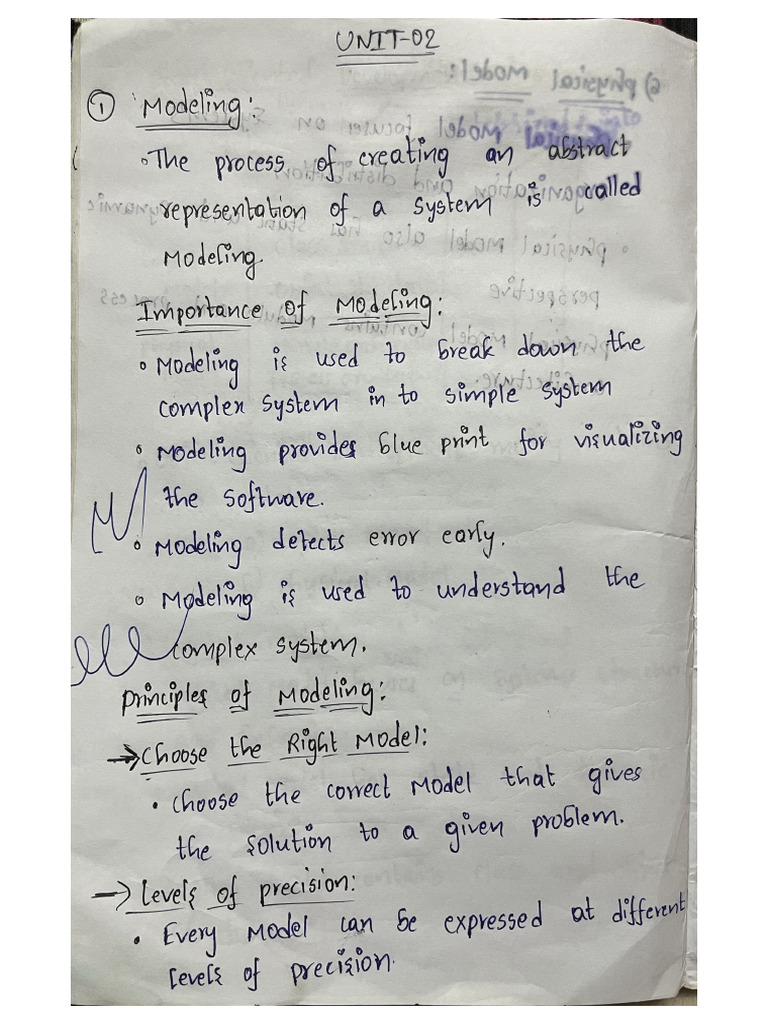 UNIT-02
① Modeling:
• The process of creating an abstract
representation of a system is called
Modeling.
Importance of Modeling:
• Modeling is used to break down the
complex system in to simple system
• Modeling provides blue print for visualizing
the software.
• Modeling detects error early.
• Modeling is used to understand the
complex system.
principles of Modeling:
→ choose the Right Model:
• choose the correct Model that gives
the solution to a given problem.
→ Levels of precision:
• Every Model can be expressed at different
levels of precision.